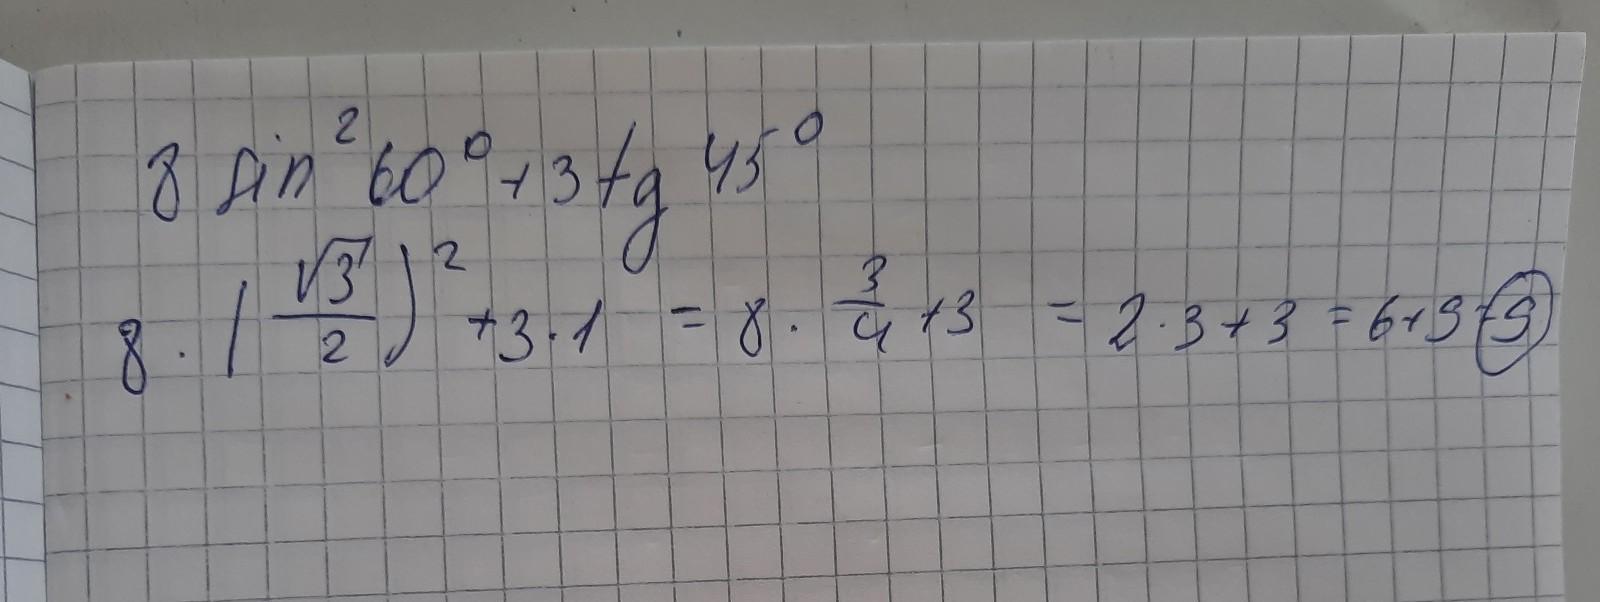 8 sin²60⁰+3tg 45⁰
8·(√3/2)²+3·1 = 8·3/4+3 = 2·3+3 = 6+9=9